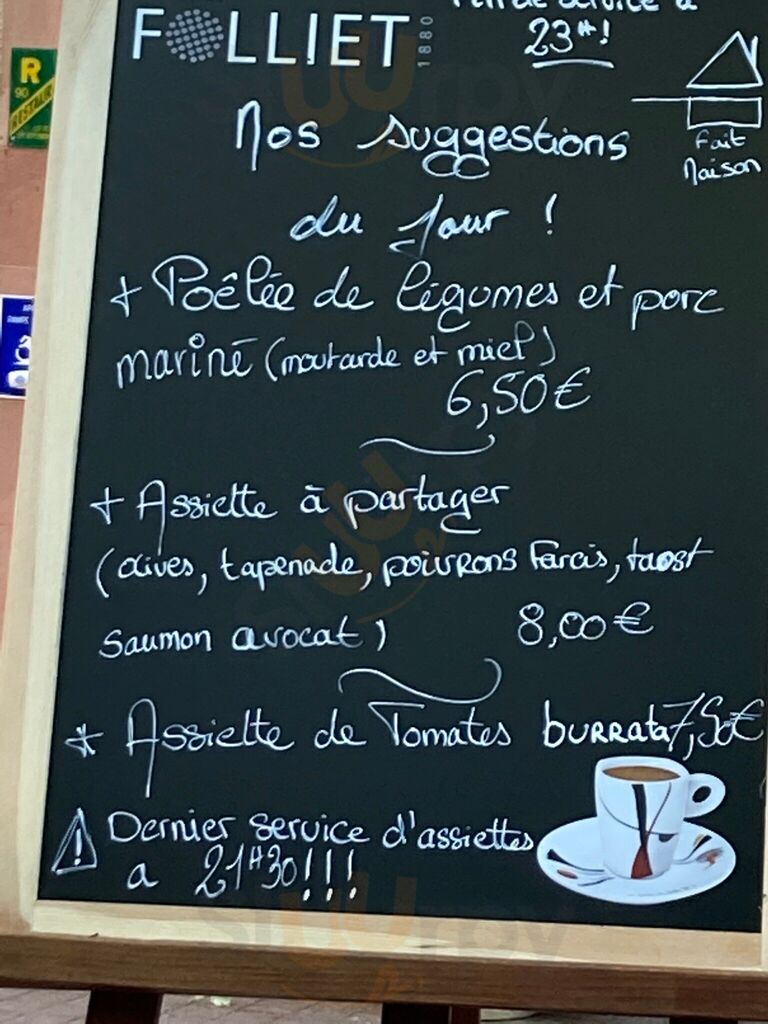 de service à
FOLLIET 1880
23H!
Nos suggestions
du Jour !
Fait
Maison
R
90
RESTAUR
+ Poêlée de légumes et porc
mariné (moutarde et miel)
6,50€
+ Assiette à partager
(olives, tapenade, poivrons farcis, taost
saumon avocat)
8,00€
* Assiette de Tomates burrata 7,50€
Dernier service d'assiettes
a 21H30!!!